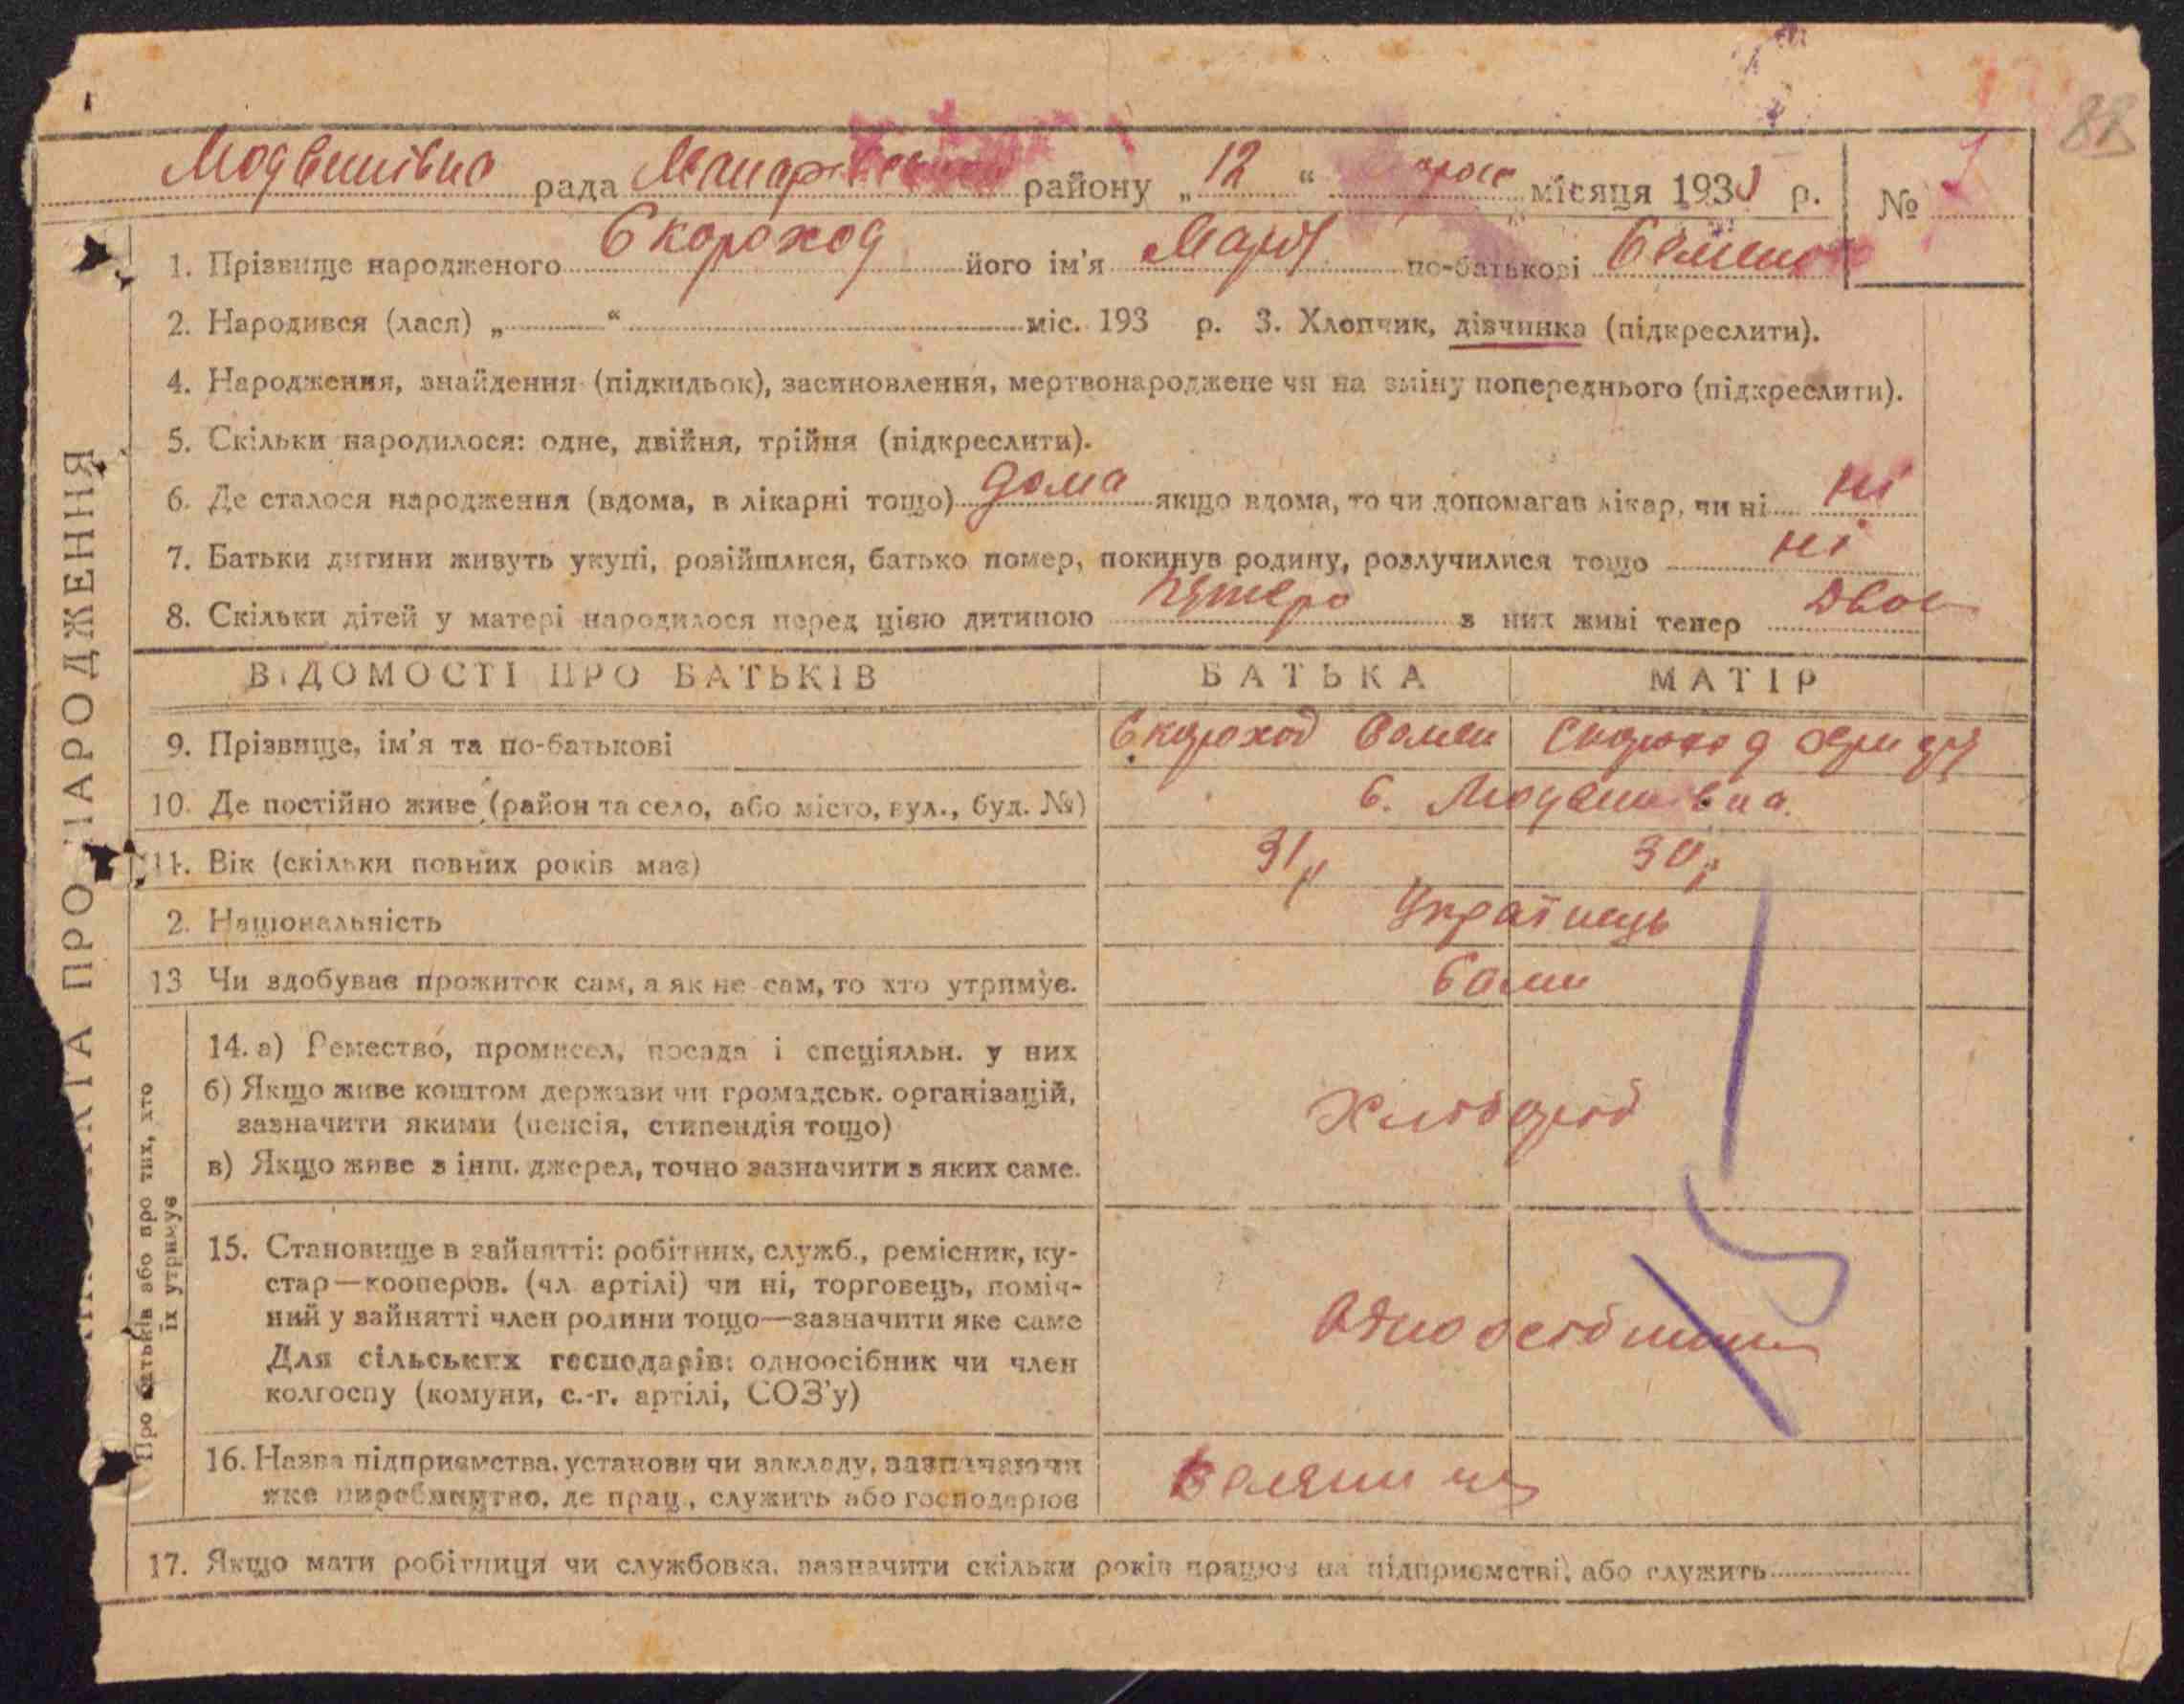 88
Людвинівка рада Макарівського району „ 12 “ місяця 193 р. № 1
1. Прізвище народженого Скороход його ім'я Марія по-батькові Семенов
2. Народився (лася) „ “ міс. 193 р. 3. Хлопчик, дівчинка (підкреслити).
4. Народження, знайдення (підкидьок), засиновлення, мертвонароджене чи на зміну попереднього (підкреслити).
5. Скільки народилося: одне, двійня, трійня (підкреслити).
6. Де сталося народження (вдома, в лікарні тощо) дома якщо вдома, то чи допомагав лікар, чи ні ні
7. Батьки дитини живуть укупі, розійшлися, батько помер, покинув родину, розлучилися тощо ні
8. Скільки дітей у матері народилося перед цією дитиною пятеро з них живі тепер двоє
ВІДОМОСТІ ПРО БАТЬКІВ БАТЬКА МАТІР
9. Прізвище, ім'я та по-батькові Скороход Семен Скороход
10. Де постійно живе (район та село, або місто, вул., буд. №) с. Людвинівка.
11. Вік (скільки повних років має) 31 р 30 р
2. Національність Українець
13 Чи здобуває прожиток сам, а як не сам, то хто утримує. Сами
14. а) Ремество, промисел, посада і спеціяльн. у них
б) Якщо живе коштом держави чи громадськ. організацій,
зазначити якими (пенсія, стипендія тощо)
в) Якщо живе з інш. джерел, точно зазначити з яких саме.
Хлібороб
15. Становище в зайнятті: робітник, служб., ремісник, ку-
стар—кооперов. (чл. артілі) чи ні, торговець, поміч-
ний у зайнятті член родини тощо—зазначити яке саме
Для сільських господарів: одноосібник чи член
колгоспу (комуни, с.-г. артілі, СОЗ'у)
Одноосібник
16. Назва підприємства, установи чи закладу, зазначаючи
яке виробництво, де прац., служить або господарює
17. Якщо мати робітниця чи службовка, зазначити скільки років працює на підприємстві, або служить
Про батьків або про тих, хто
їх утримує
ПРО НАРОДЖЕННЯ